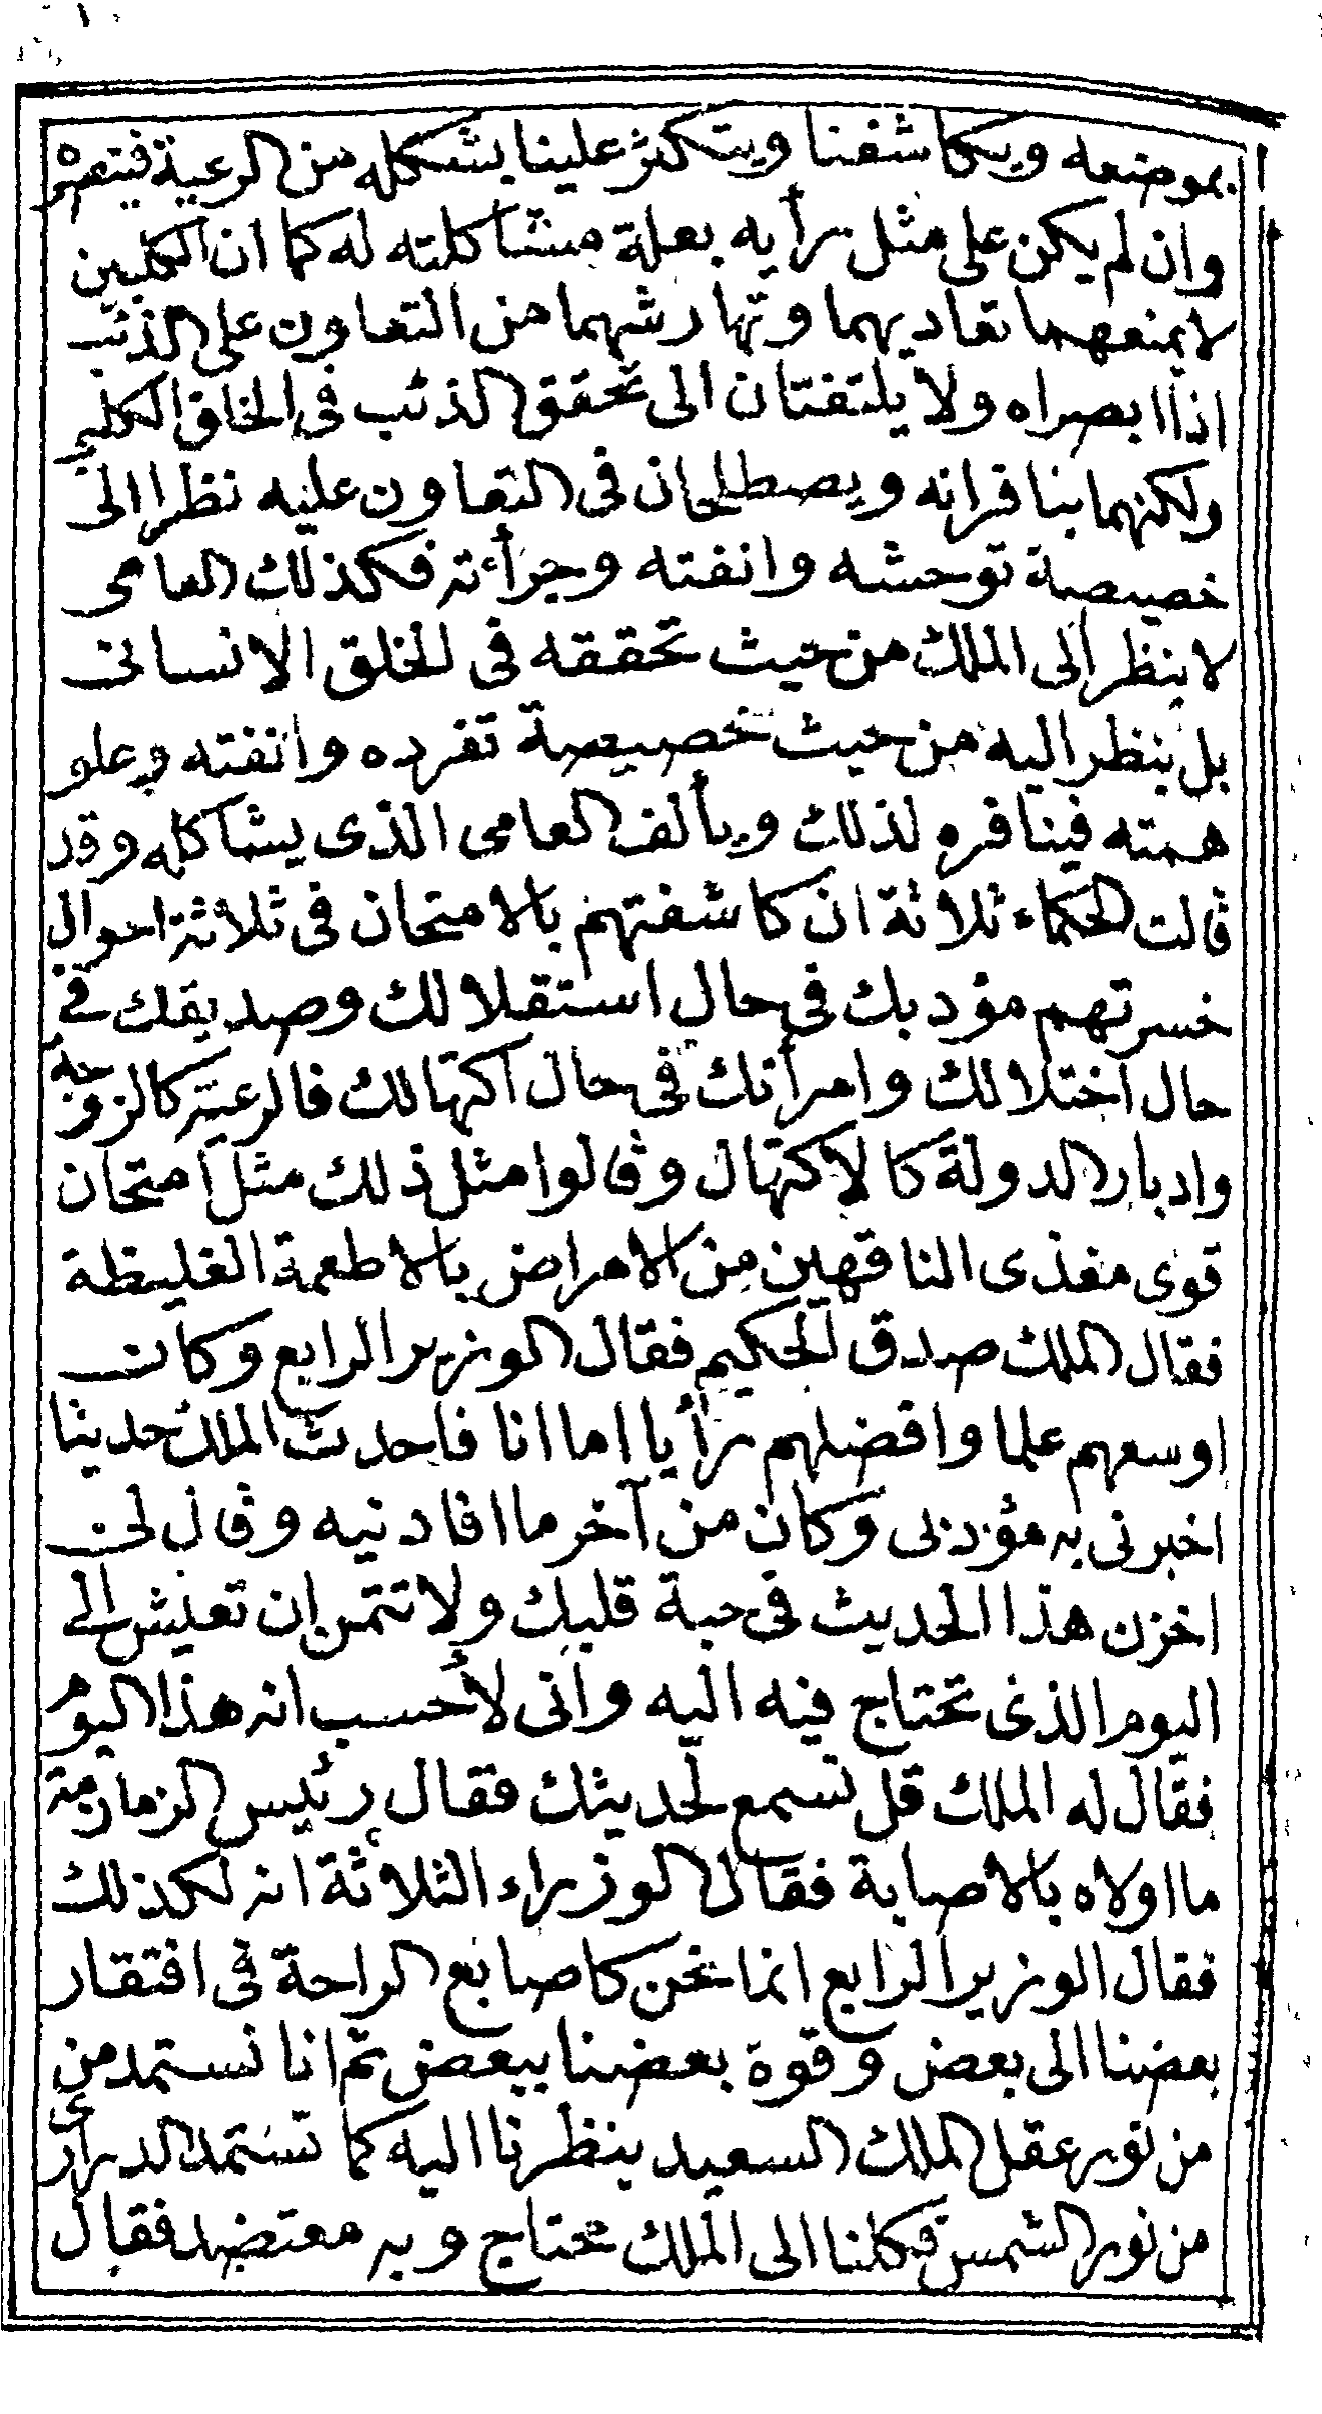 بموضعه ويكاشفنا ويتكثر علينا بشكله من الرعية فينصره
وان لم يكن على مثل رأيه بعلة مشاكلته له كما ان الكلبين
لا يمنعهما تعاديهما وتهارشهما من التعاون على الذئب
اذا ابصراه ولا يلتفتان الى تحقق الذئب في الخلق الكلبي
ولكنهما ينافرانه ويصطلحان في التعاون عليه نظرا الى
خصيصة توحشه وانفته وجرأته فكذلك العامى
لا ينظر الى الملك من حيث تحققه في الخلق الانسانى
بل ينظر اليه من حيث خصيصة تفرده وانفته وعلو
همته فينافره لذلك ويألف العامى الذى يشاكله وقد
قالت الحكماء ثلاثة ان كاشفتهم بالامتحان في ثلاثة احوال
خسرتهم مؤدبك في حال استقلالك وصديقك في
حال اختلالك وامرأتك في حال اكتهالك فالرعية كالزوجة
وادبار الدولة كالاكتهال وقالوا مثل ذلك مثل امتحان
قوى مغذى الناقهين من الامراض بالاطعمة الغليظة
فقال الملك صدق الحكيم فقال الوزير الرابع وكان
اوسعهم علما وافضلهم رأيا اما انا فاحدث الملك حديثا
اخبرنى به مؤدبى وكان من آخر ما افادنيه وقال لى
اخزن هذا الحديث في حبة قلبك ولا تتمن ان تعيش الى
اليوم الذى تحتاج فيه اليه وانى لأحسب انه هذا اليوم
فقال له الملك قل نسمع لحديثك فقال رئيس الزمازمة
ما اولاه بالاصابة فقال الوزراء الثلاثة انه لكذلك
فقال الوزير الرابع انما نحن كاصابع الراحة في افتقار
بعضنا الى بعض وقوة بعضنا ببعض ثم انا نستمد من
من نور عقل الملك السعيد بنظرنا اليه كما تستمد الدرارى
من نور الشمس فكلنا الى الملك محتاج وبه معتضد فقال